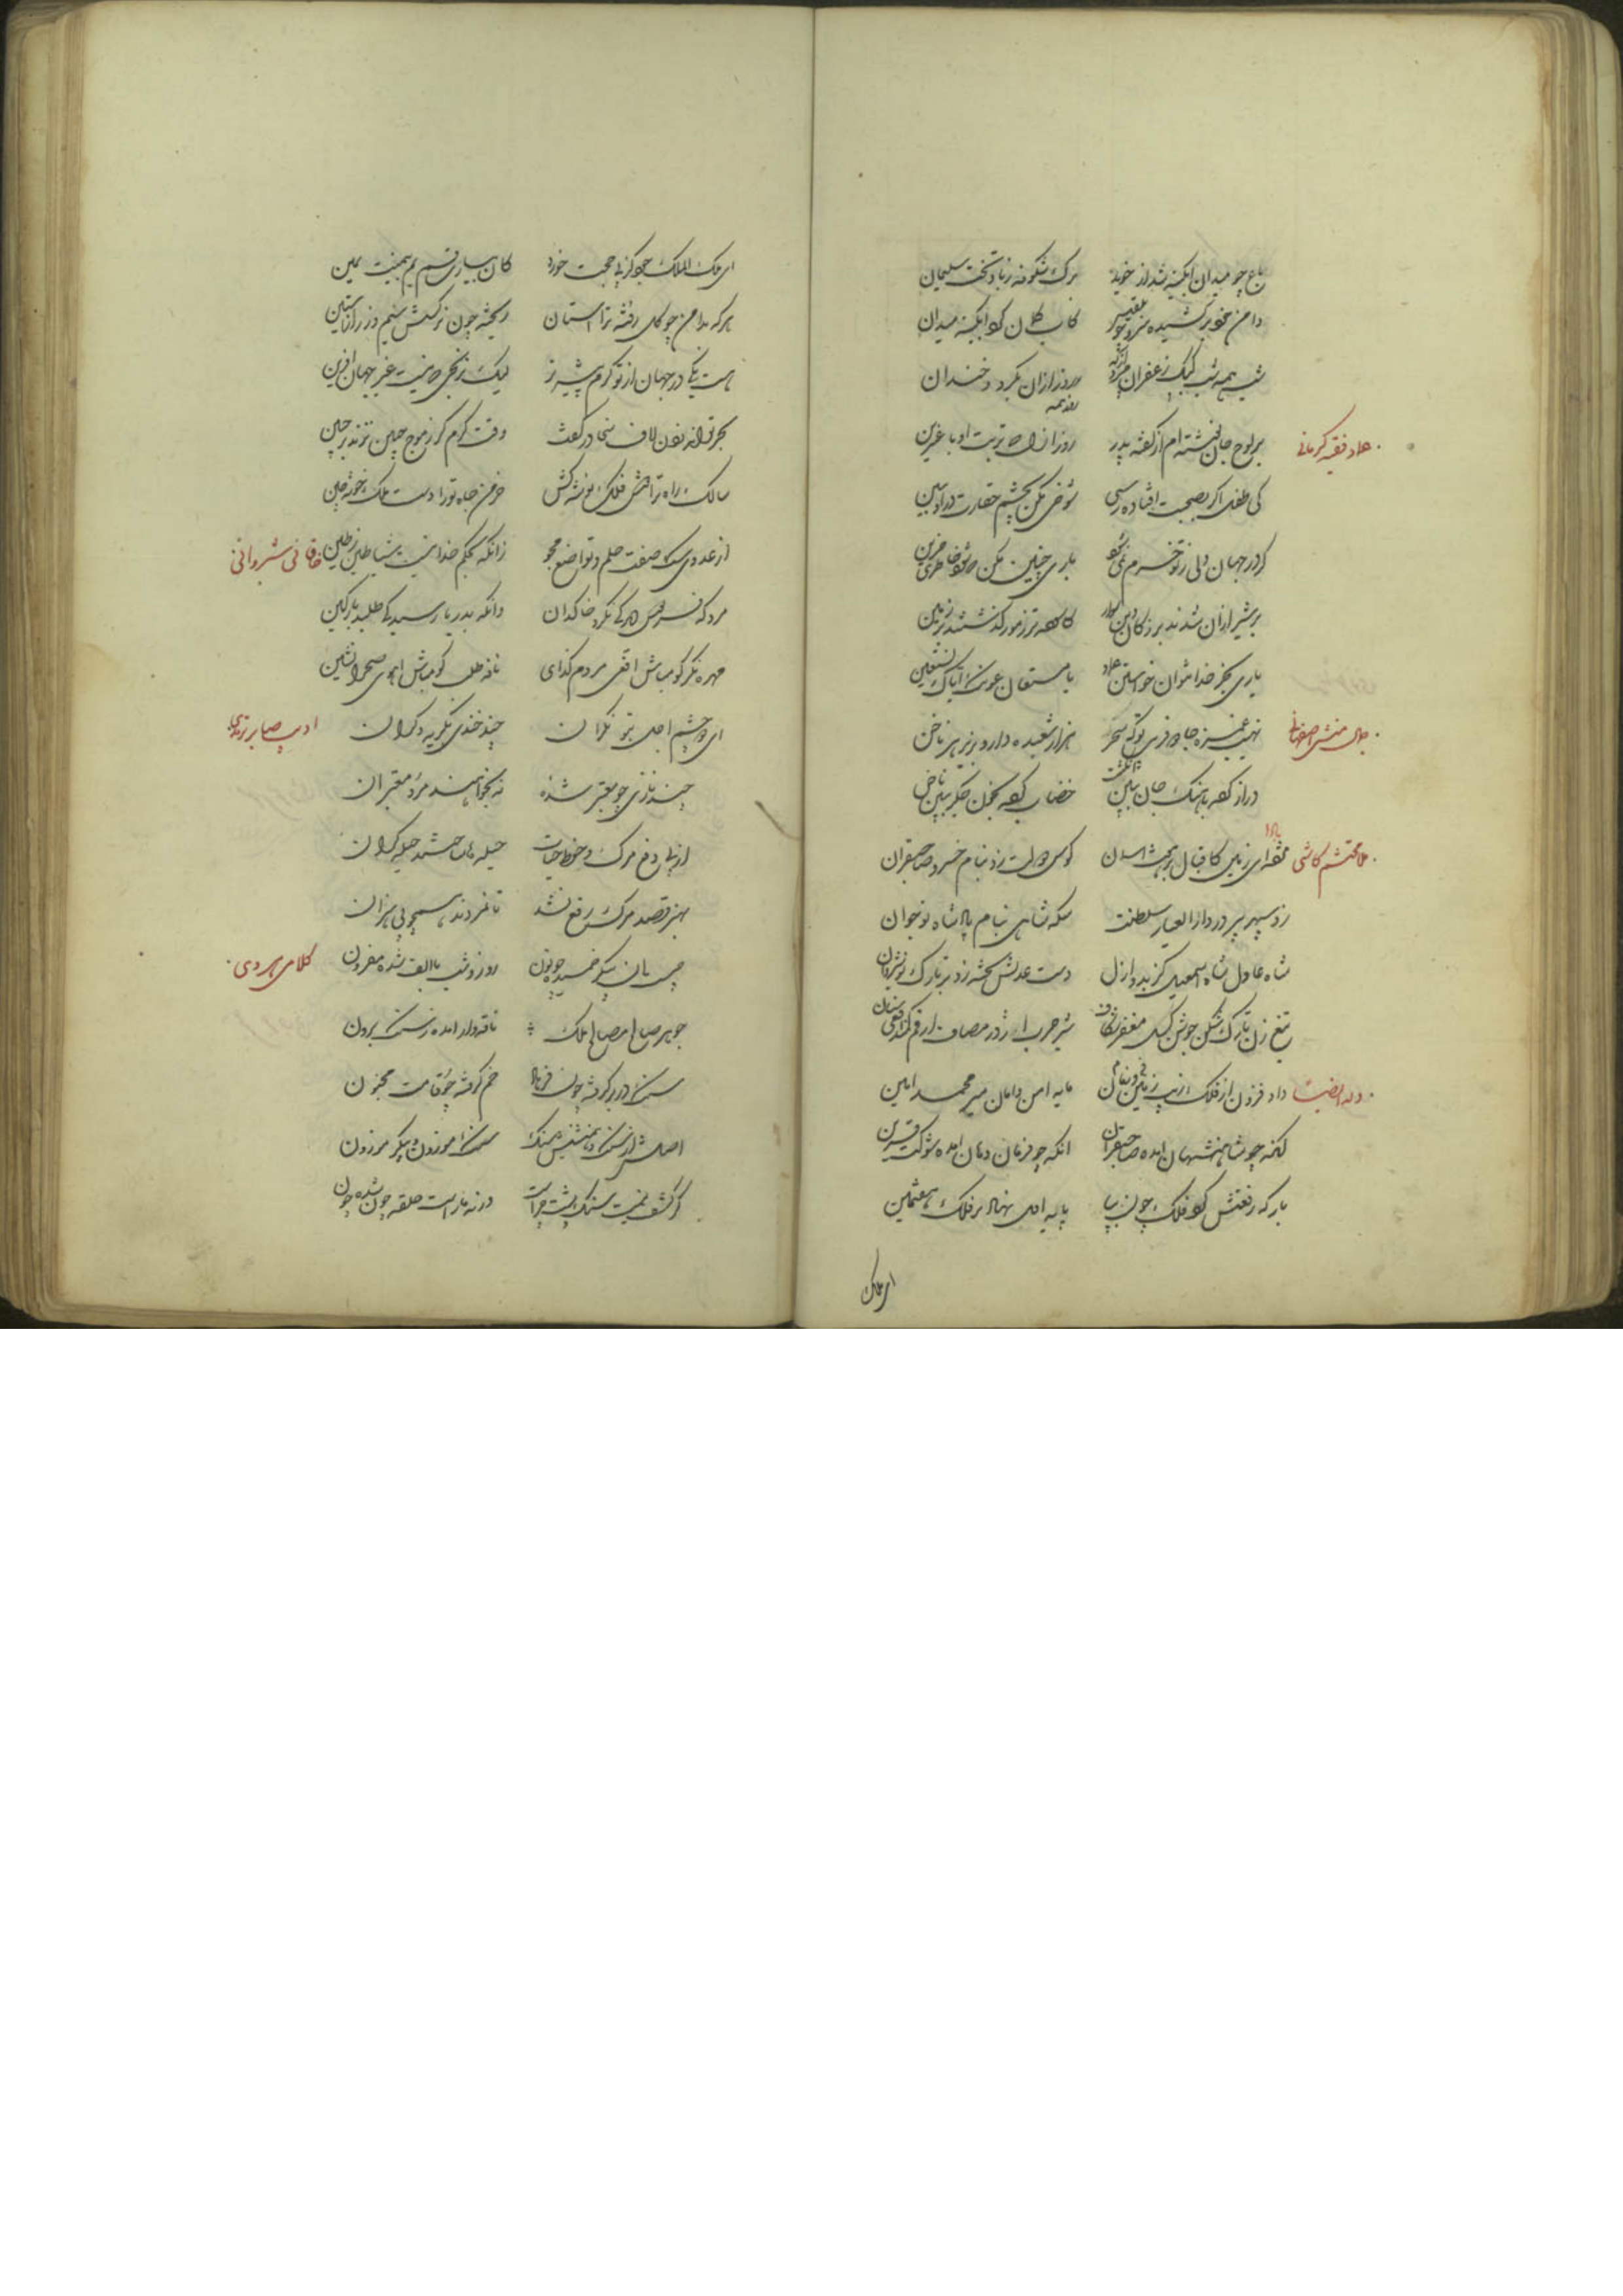 باغ چو میدان آبگینه شد از خوید برک شکوفه زباد تخت سلیمان
دامن خود برکشیده سرو چو بلقیس کاب کمان آبگینه میدان
شب همه شب کبک زعفران روز ازان بکرد خندان
عماد فقیه کرمانی بر لوح جان نوشته ام از گفته پدر روز ازل که تربت او باد عنبرین
کای طفل اگر بصحبت افتاده رسی شوخی مکن بچشم حقارت درو مبین
گر در جهان دلی ز تو خرم نمی شود باری چنین مکن که شود خاطری حزین
بر شیر ازان شدند بزرگان دین سوار کاهسته تر ز مور گذشتند بر زمین
یاری بجز خدا نتوان خواستن عماد یا مستعان عونک ایاک نستعین
منشی اصفهانی هزار شعبده دارد بزیر هر ناخن
دراز کرده باهنگ جان خضاب کرده بخون جگر ناخن
ملا محتشم کاشی مژده ای زمین کاقبال بر هفت آسمان کوس دولت زد بنام خسرو صاحبقران
زد سپهر پیر در دار العیار سلطنت سکه شاهی بنام پادشاه نوجوان
شاه عادل شاه اسمعیل کز بدو ازل دست عدلش تخته زد بر تارک نوشیروان
تیغ زن تارک شکن جوشن گسل مغفر شکاف شیر حرب اژدر مصاف
وله ایضا داد فزون از فلک زیب زمین و زمان مایه امن و امان میر محمد امین
انکه چو شاهنشهان آمده صاحبقران انکه چو فرمان دهان آمده شوکت قرین
بارکه رفعتش فلک چون بپا پایه اول نهاد بر فلک هفتمین
ای ملک
ای ملک الملک جود کز پی حجت خورد کان بیسارت قسم یم بیمینت یمین
هر که بدامن چو گل رفته ترا آستان ریخته چون نرکسش سیم و زر از آستین
هست یکی در جهان از تو کرم پیشه تر لیک نرنجی غیر جهان آفرین
بحر تواند زدن لاف سخا در کفت وقت کرم گر ز موج چین نزند بر جبین
سالک راه ترا فلک توشه کش خرمن جاه تو را دست ملک خوشه چین
از عدوی سک صفت حلم و تواضع مجو زانکه بحکم خداست شیاطین ز طین خاقانی شروانی
مرد که فردوس دید کی نکرد خاکدان وانکه بدریا رسید کی طلبد پارگین
مهره نگر کو مباش افعی مردم گزای نافه طلب کو مباش آهوی صحرا نشین
ای دو چشم اجل بتو نگران چند خندی بگریه دگران ادیب صابر ترمذی
چند نازی چو معتبر شده نه بخواهند مرد معتبران
از پی دفع مرگ و حفظ حیات حیله ها ساختند حیله گران
بهنر قصد مرک دفع نشد تا نمردند همچو بی هنران
چیست آن پیکر خمیده چو نون روز و شب با الف شده مقرون کلامی هروی
جوهر صالح مصالح ملک ناقه وار آمده ز سنگ برون
سنگ در بر گرفته چون فرهاد خم گرفته چو قامت مجنون
اصلش از سنک و همنشینش سنک سنک ناموزون و پیکر موزون
گر کشف نیست سنگ پشت چراست ورنه مار است حلقه چون شده چون